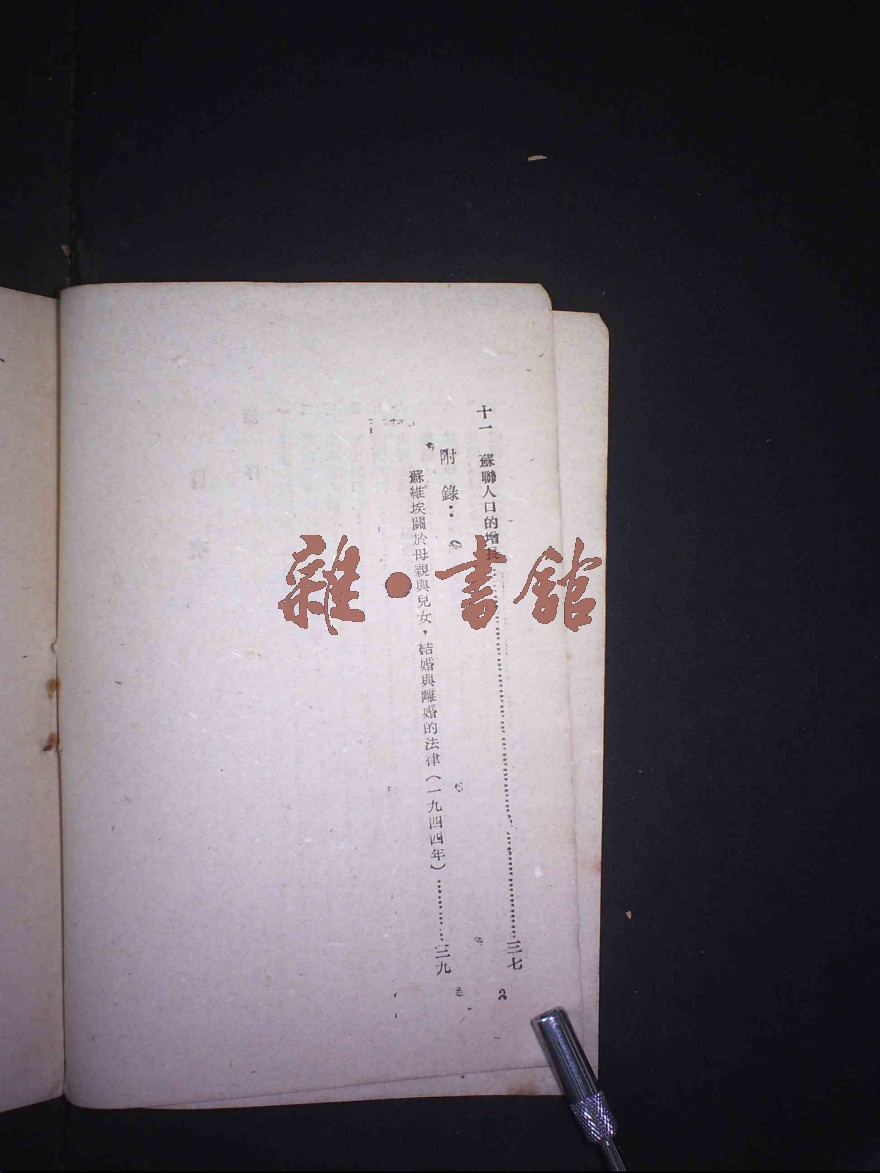 十一 蘇聯人口的增長……三七
附錄：
蘇維埃關於母親與兒女，結婚與離婚的法律（一九四四年）……三九
2
雜・書館